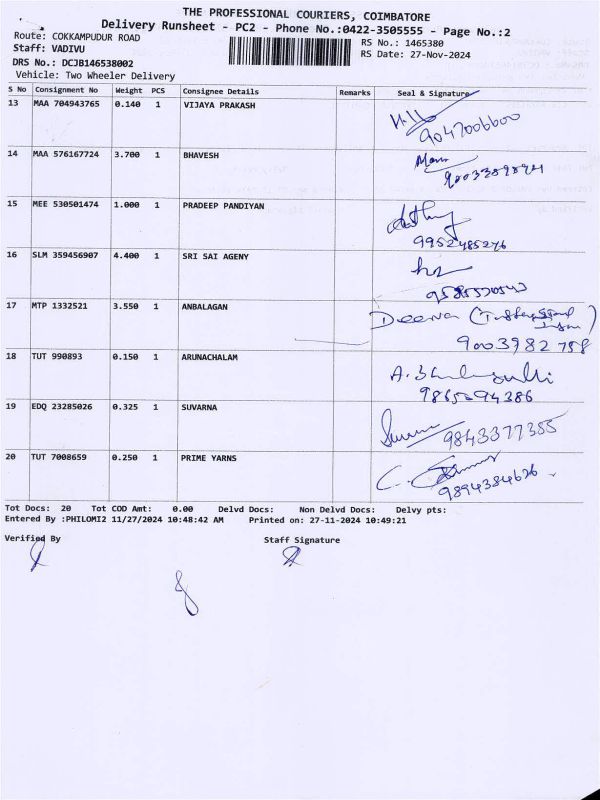 THE PROFESSIONAL COURIERS, COIMBATORE
Delivery Runsheet - PC2 - Phone No.:0422-3505555 - Page No.:2
Route: COKKAMPUDUR ROAD
RS No.: 1465380
Staff: VADIVU
RS Date: 27-Nov-2024
DRS No.: DCJB146538002
Vehicle: Two Wheeler Delivery
S No Consignment No Weight PCS Consignee Details Remarks Seal & Signature
13 MAA 704943765 0.140 1 VIJAYA PRAKASH
9047006600
14 MAA 576167724 3.700 1 BHAVESH
15 MEE 530501474 1.000 1 PRADEEP PANDIYAN
9952485276
16 SLM 359456907 4.400 1 SRI SAI AGENY
17 MTP 1332521 3.550 1 ANBALAGAN
9003982758
18 TUT 990893 0.150 1 ARUNACHALAM
9865094386
19 EDQ 23285026 0.325 1 SUVARNA
9843377355
20 TUT 7008659 0.250 1 PRIME YARNS
9894384626
Tot Docs: 20 Tot COD Amt: 0.00 Delvd Docs: Non Delvd Docs: Delvy pts:
Entered By :PHILOMI2 11/27/2024 10:48:42 AM Printed on: 27-11-2024 10:49:21
Verified By Staff Signature